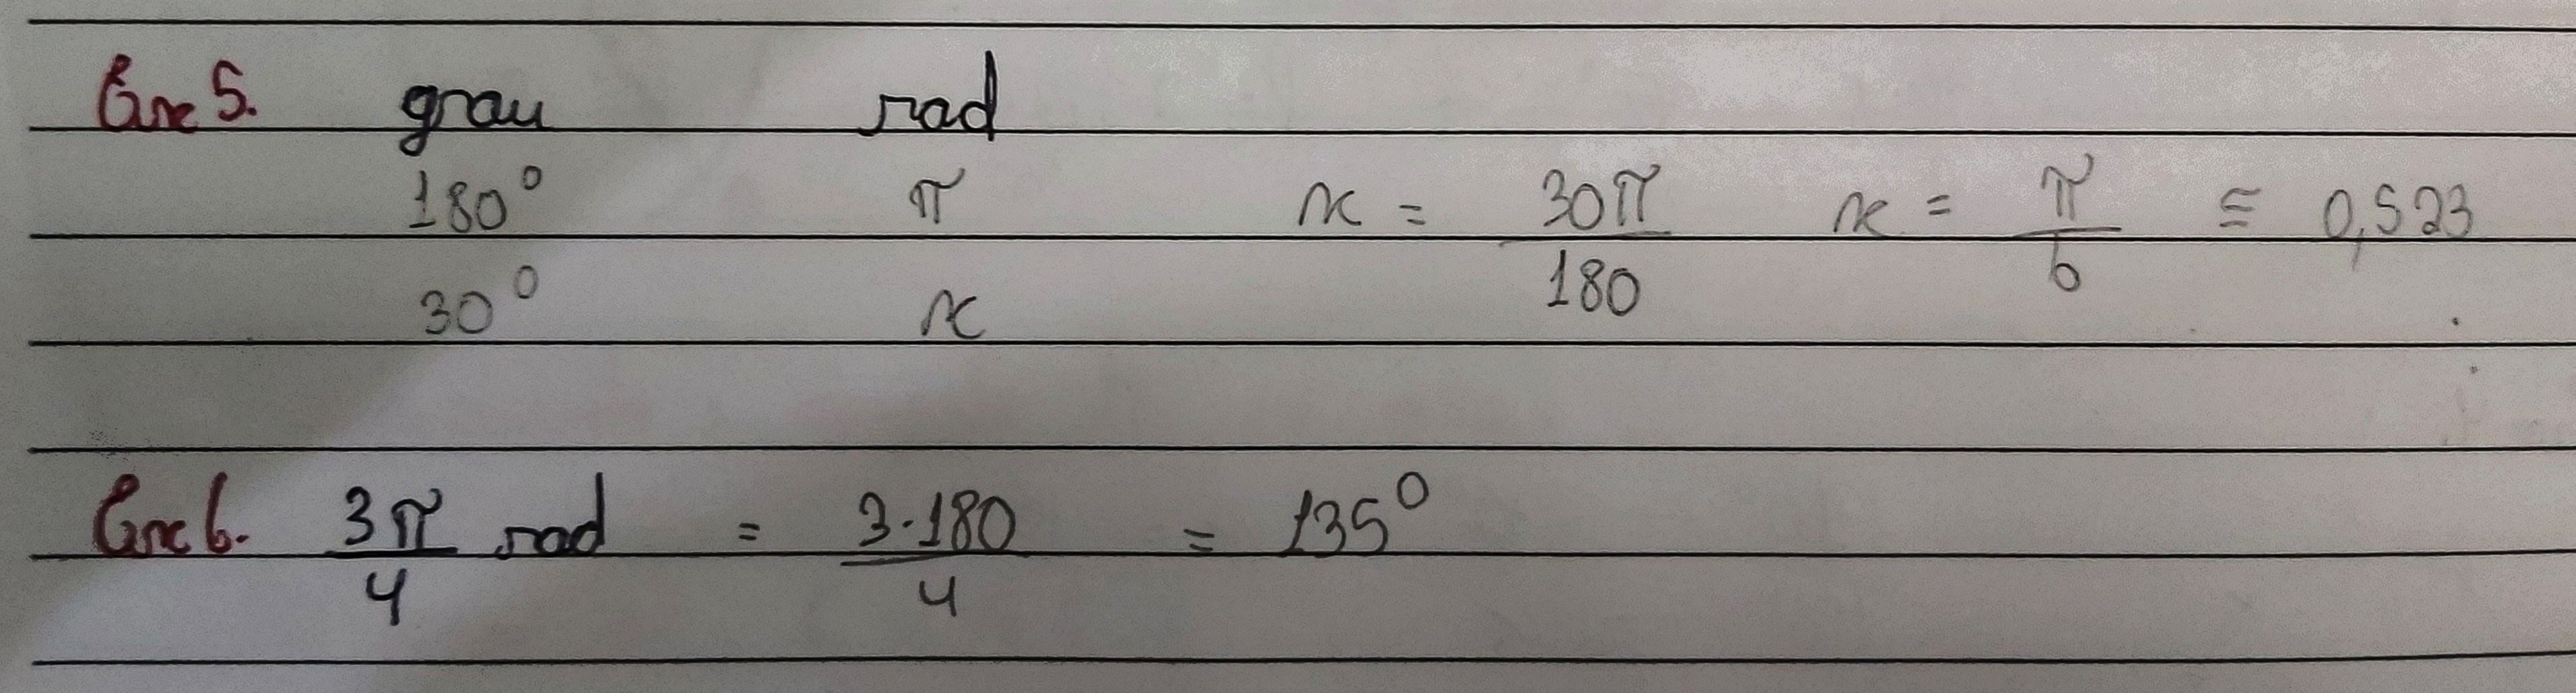 Ex 5. grau rad
180° π x = 30π/180 x = π/6 ≅ 0,523
30° x
Ex 6. 3π/4 rad = 3·180/4 = 135°